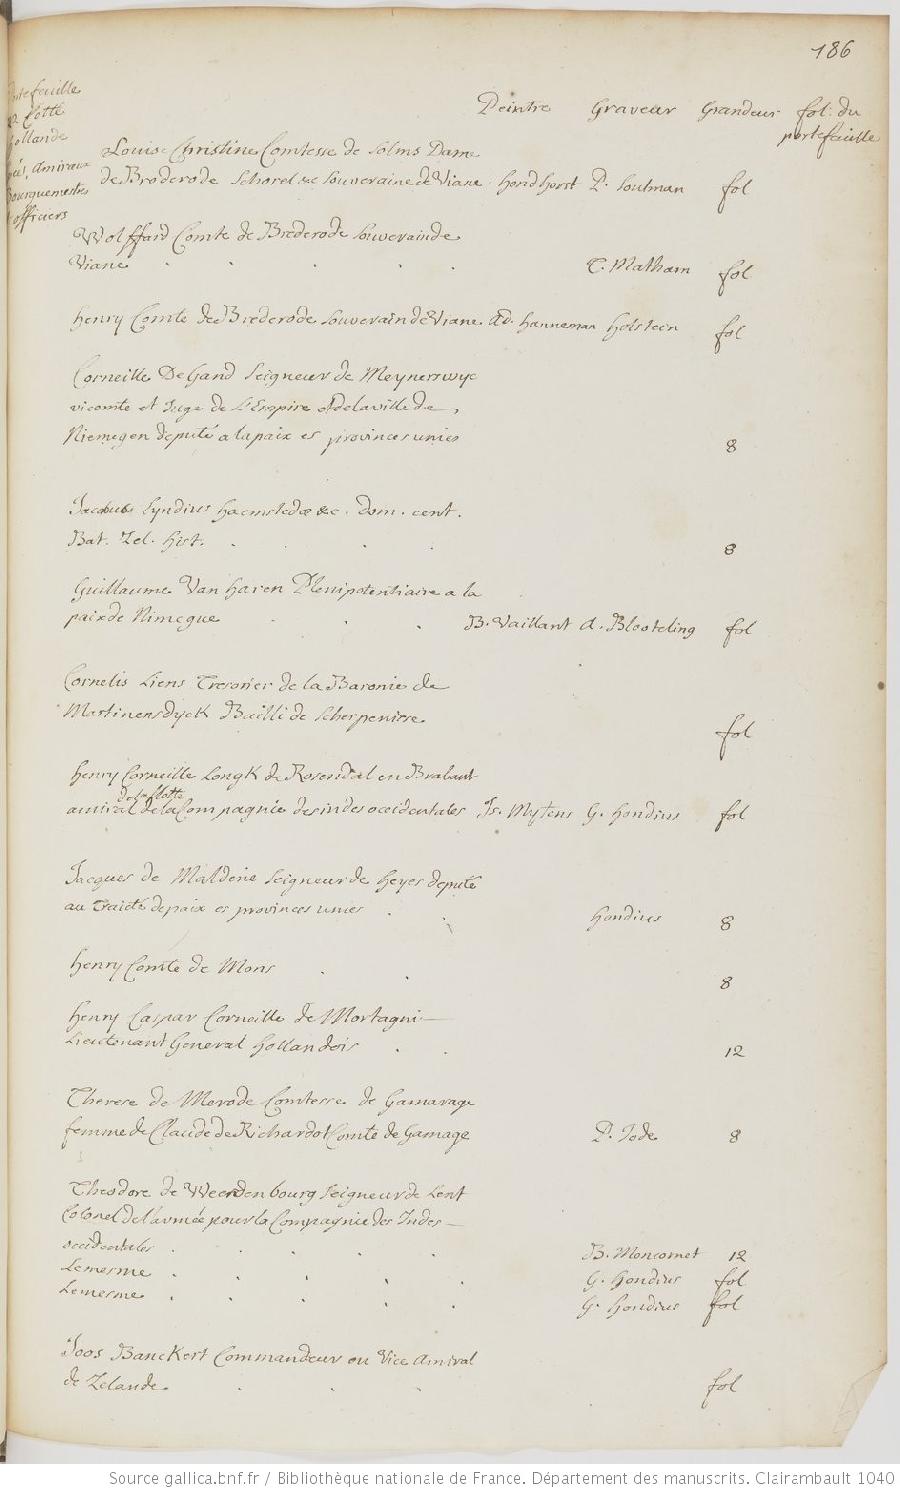 186
Peintre Graveur Grandeur fol: du
portefeuille
tefeuille
Cotté
hollande
amiraux
Bourguemestres
officiers
Louise Christine Comtesse de Solms Dame
de Broderode Schorel &c Souveraine de Viane hondhorst P. Soutman fol
Wolffard Comte de Brederode souverainde
Viane . . . . . T. Matham fol
henry Comte de Brederode Souverain de Viane Ad. hanneman holsteen fol
Corneille De Gand Seigneur de Meynerswyc
vicomte et Juge de L'Empire et de la ville de
Niemegen deputé a la paix es provinces unies 8
Jacobus Eyndius haemstedæ &c. dom. cent.
Bat. Zel. hist. . . . 8
Guillaume Van haren Plenipotentiaire a la
paix de Nimegue . . . B. Vaillant A. Blooteling fol
Cornelis Liens Tresorier de la Baronie de
Martinensdyck Bailli de Scherpenisse fol
henry Corneille Longk de Rosendal en Brabant
de la flotte
amiral de la Compagnie des indes occidentales Is. Mytens G. hondius fol
Jacques de Maldere Seigneur de heyes deputé
au Traicté de paix es provinces unies . . hondius 8
henry Comte de Mons . . 8
henry Caspar Corneille de Mortagni
Lieutenant General hollandois . . 12
Therese de Merode Comtesse de Gamarage
femme de Claude de Richardot Comte de Gamage P. Jode 8
Theodore de Weerdenbourg Seigneur de Lent
Colonel de l'armée pour la Compagnie des Indes
occidentales . . . . B. Moncornet 12
Lemesme . . . . . G. hondius fol
Lemesme . . . . G. hondius fol
Joos Banckert Commandeur ou Vice Amiral
de Zelande . . . fol
Source gallica.bnf.fr / Bibliothèque nationale de France. Département des manuscrits. Clairambault 1040